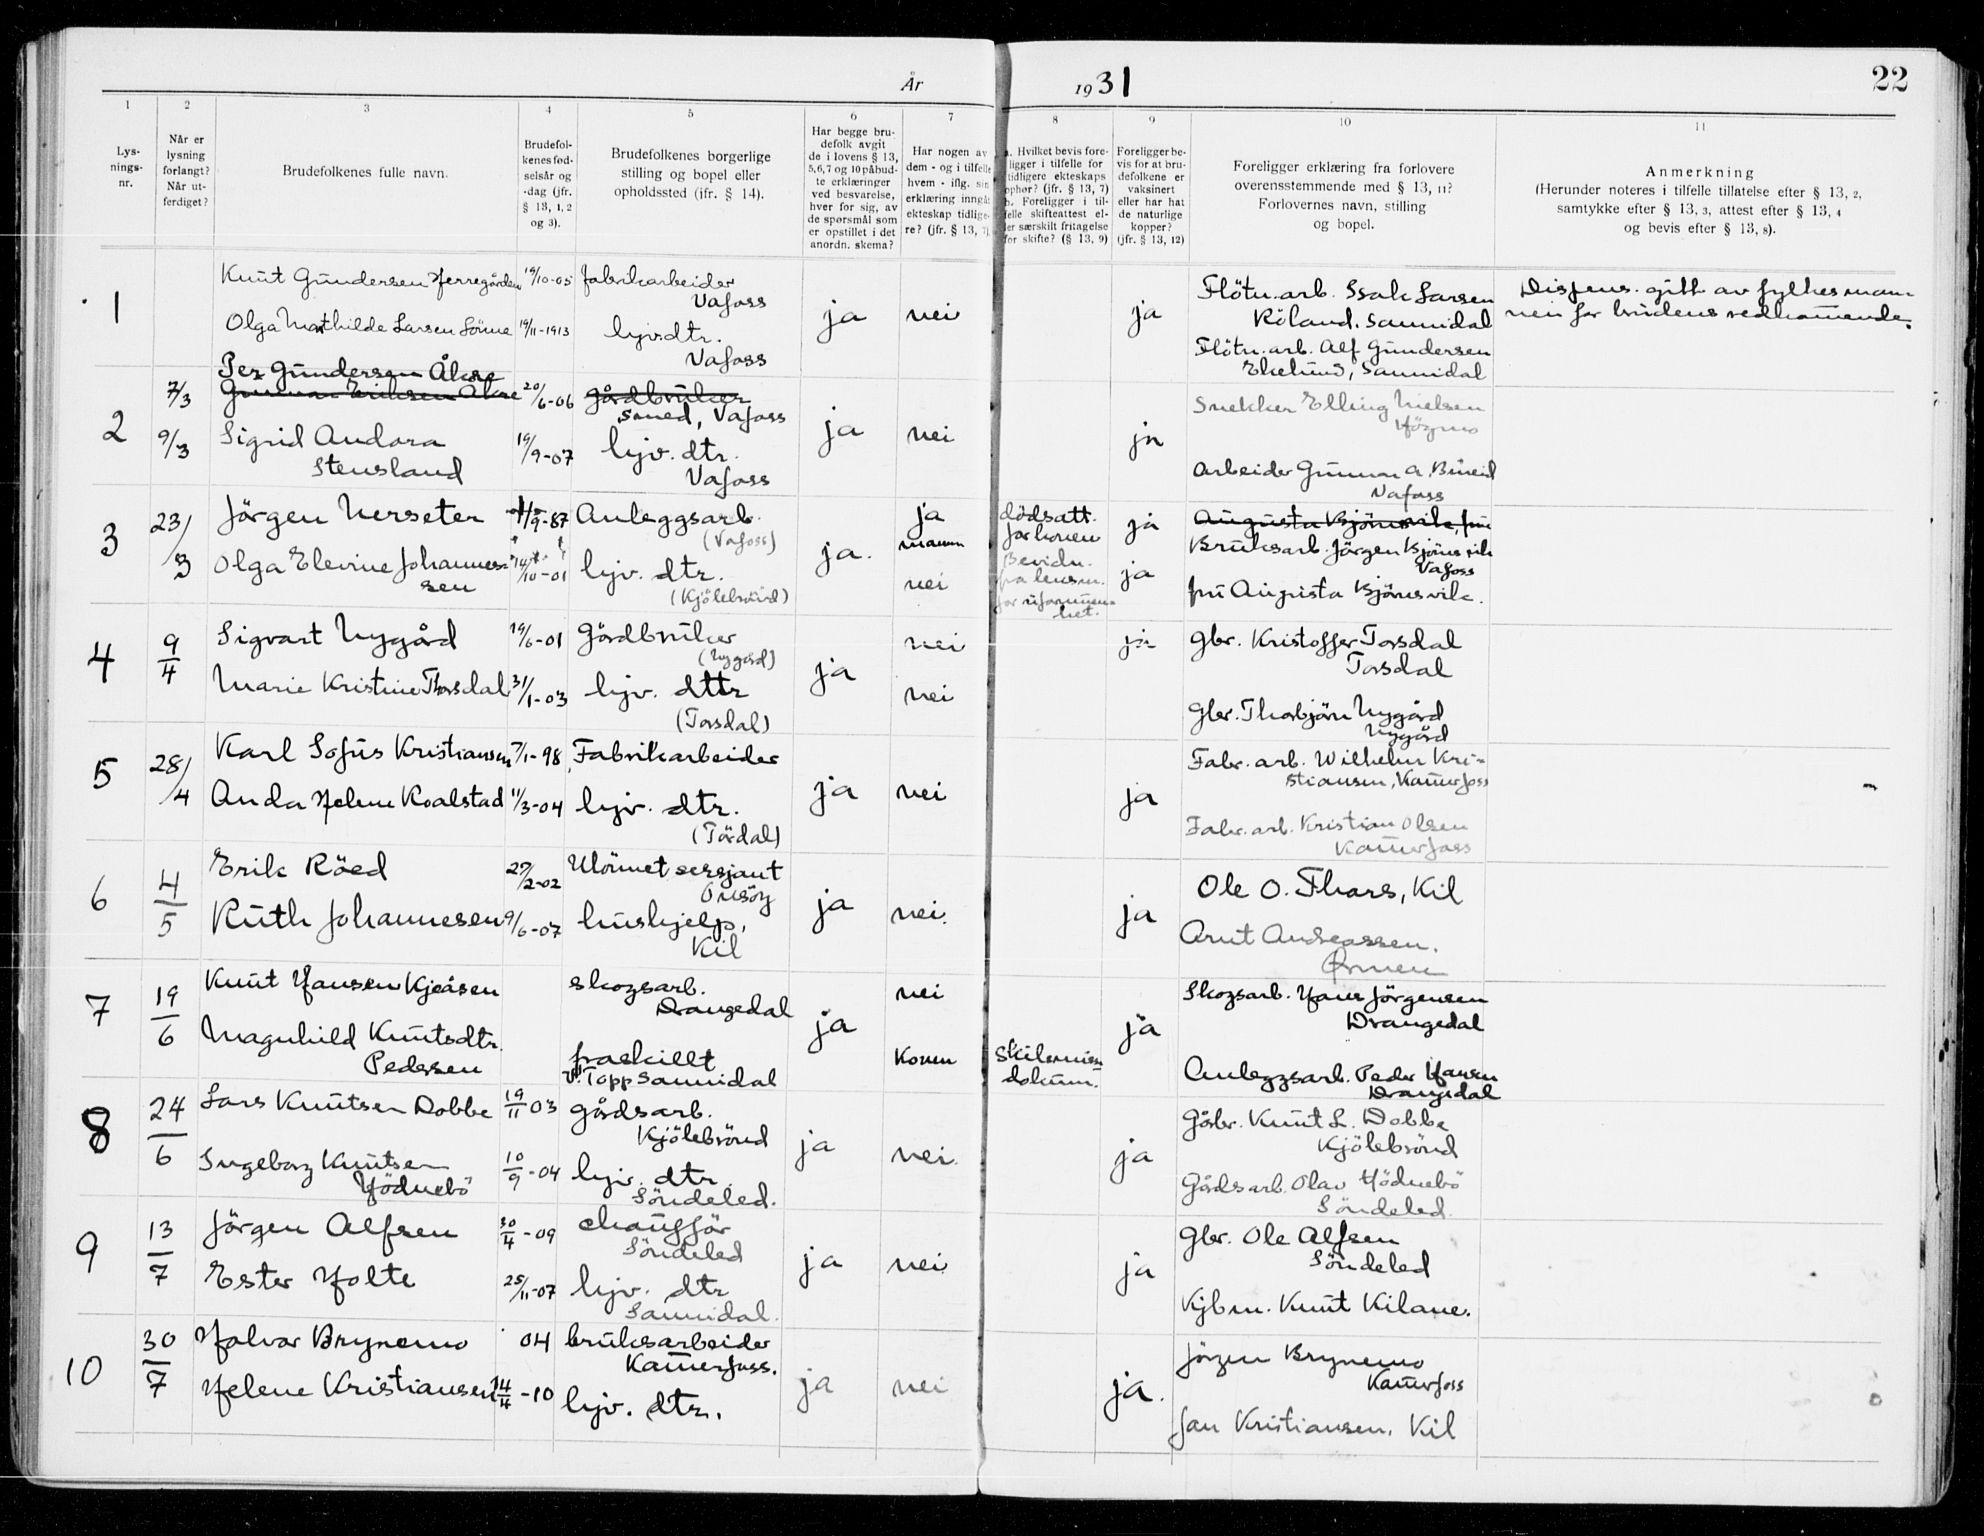 År 1931
22
1 2 3 4 5 6 7 8 9 10 11
Lys-
nings-
nr.
Når er
lysning
forlangt?
Når ut-
ferdiget?
Brudefolkenes fulle navn.
Brudefol-
kenes fød-
selsår og
-dag (jfr.
§ 13, 1, 2
og 3).
Brudefolkenes borgerlige
stilling og bopel eller
opholdssted (jfr. § 14).
Har begge bru-
defolk avgit
de i lovens § 13,
5,6,7 og 10 påbud-
te erklæringer
ved besvarelse,
hver for sig, av
de spørsmål som
er opstillet i det
anordn. skema?
Har nogen av
dem - og i tilfelle
hvem - iflg. sin
erklæring inngåt
ekteskap tidlige-
re? (jfr. § 13, 7)
a. Hvilket bevis fore-
ligger i tilfelle for
tidligere ekteskaps
ophør? (jfr. § 13, 7)
b. Foreligger i til-
felle skifteattest el-
ler særskilt fritagelse
for skifte? (§ 13, 9)
Foreligger be-
vis for at bru-
defolkene er
vaksinert
eller har hat
de naturlige
kopper?
(jfr. § 13, 12)
Foreligger erklæring fra forlovere
overensstemmende med § 13, 11?
Forlovernes navn, stilling
og bopel.
Anmerkning
(Herunder noteres i tilfelle tillatelse efter § 13, 2,
samtykke efter § 13, 3, attest efter § 13, 4
og bevis efter § 13, 8).
1
Knut Gundersen Herregården
19/10-05
fabrikarbeider
Vafoss
Olga Mathilde Larsen Lönne
19/11-1913
hjv.dtr.
Vafoss
ja
nei
ja
Flötn.arb. Isak Larsen
Röland. Sannidal
Flötn.arb. Alf Gundersen
Ekelund, Sannidal
Dispens. gitt av fylkesman-
nen for brudens vedkommende.
2
7/3
9/3
Per Gundersen Åkre
Gunnar Eriksen Åkre
20/6-06
gårdbruker
smed, Vafoss
Sigrid Andora
Stensland
19/9-07
hjv. dtr.
Vafoss
ja
nei
ja
Snekker Elling Nielsen
Högmo
Arbeider Gunnar A. Bureid
Vafoss
3
23/3
Jörgen Nerseter
1/9-87
Anleggsarb.
(Vafoss)
Olga Elevine Johannes-
sen
14/10-01
hjv. dtr.
(Kjölebrönd)
ja.
ja
mannen
nei
dödsatt.
for konen
Bevidn.
fra lensm.
for uformuen-
het.
ja
ja
Augusta Bjönsvik, fru
Bruksarb. Jörgen Bjönsvik
Vafoss
fru Augusta Bjönsvik.
4
9/4
Sigvart Nygård
19/6-01
Gårdbruker
(Nygård)
Marie Kristine Thorsdal
31/1-03
hjv. dttr
(Torsdal)
ja
nei
nei
ja
Gbr. Kristoffer Torsdal
Torsdal
Gbr. Thorbjörn Nygård
Nygård
5
28/4
Karl Sofus Kristiansen
7/1-98
Fabrikarbeider
Anda Helene Koalstad
11/3-04
hjv. dtr.
(Tördal)
ja
nei
ja
Fabr. arb. Wilhelm Kri-
stiansen, Kammerfoss
Fabr. arb. Kristian Olsen
Kammerfoss
6
4/5
Erik Röed
27/2-02
Ulönnet sersjant
Onsöy
Ruth Johannesen
9/6-07
hushjelp,
Kil
ja
nei.
ja
Ole O. Thors, Kil
Arnt Andreassen.
7
19/6
Knut Hansen Kjeåsen
skogsarb.
Drangedal
Magnhild Knutsdtr.
Pedersen
fraskillt
v. Topp Sannidal
ja
nei
Konen
Skilsmisse
dokum.
ja
Skogsarb. Hans Jörgensen
Drangedal
Anleggsarb. Peder Hansen
Drangedal
8
24/6
Lars Knutsen Dobbe
19/11 03
gårdsarb.
Kjölebrönd
Ingeborg Knutsen
Hödnebö
10/9-04
hjv. dtr.
Söndeled.
ja
nei.
ja
Gårbr. Knut L. Dobbe
Kjölebrönd
Gårdsarb. Olav Hödnebö
Söndeled.
9
13/7
Jörgen Alfsen
30/4-09
chaufför
Söndeled
Ester Holte
25/11-07
hjv. dtr
Sannidal.
ja
nei.
ja
Gbr. Ole Alfsen
Söndeled
Kjbm. Knut Kilane.
10
30/7
Halvor Brynemo
04
bruksarbeider
Kammerfoss.
Helene Kristiansen
14/4-10
hjv. dtr.
ja
nei
ja.
Jörgen Brynemo
Kammerfoss
Jan Kristiansen. Kil